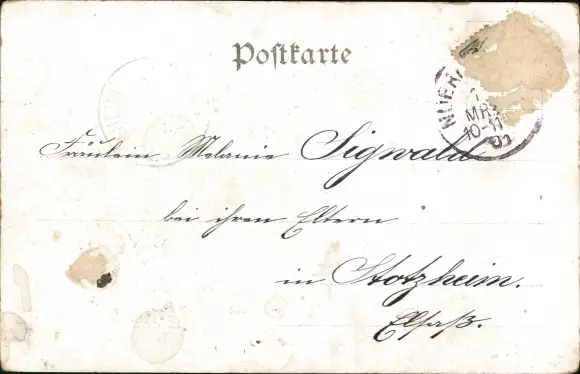 Postkarte
NUERN
MRZ
10-11
01
Fräulein Melanie Sigwald
bei ihren Eltern
in Stotzheim.
Elsaß.